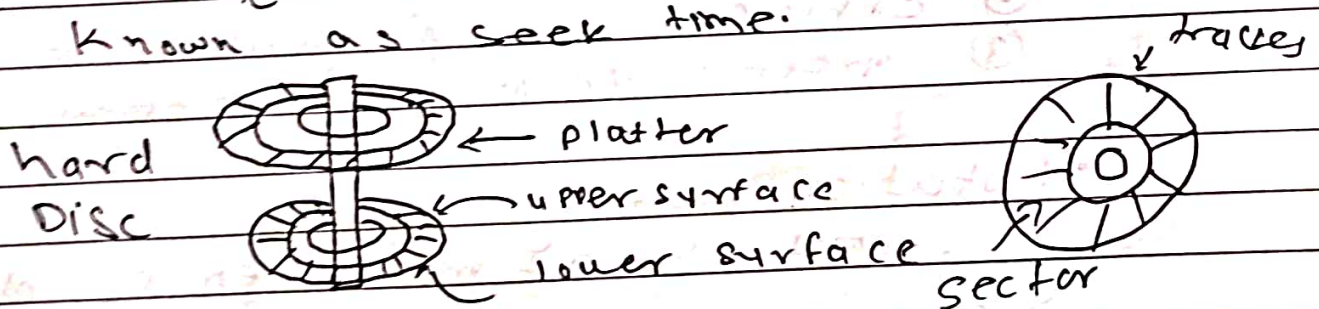 Known as seek time.
tracks
hard
Disc
platter
upper surface
lower surface
sector